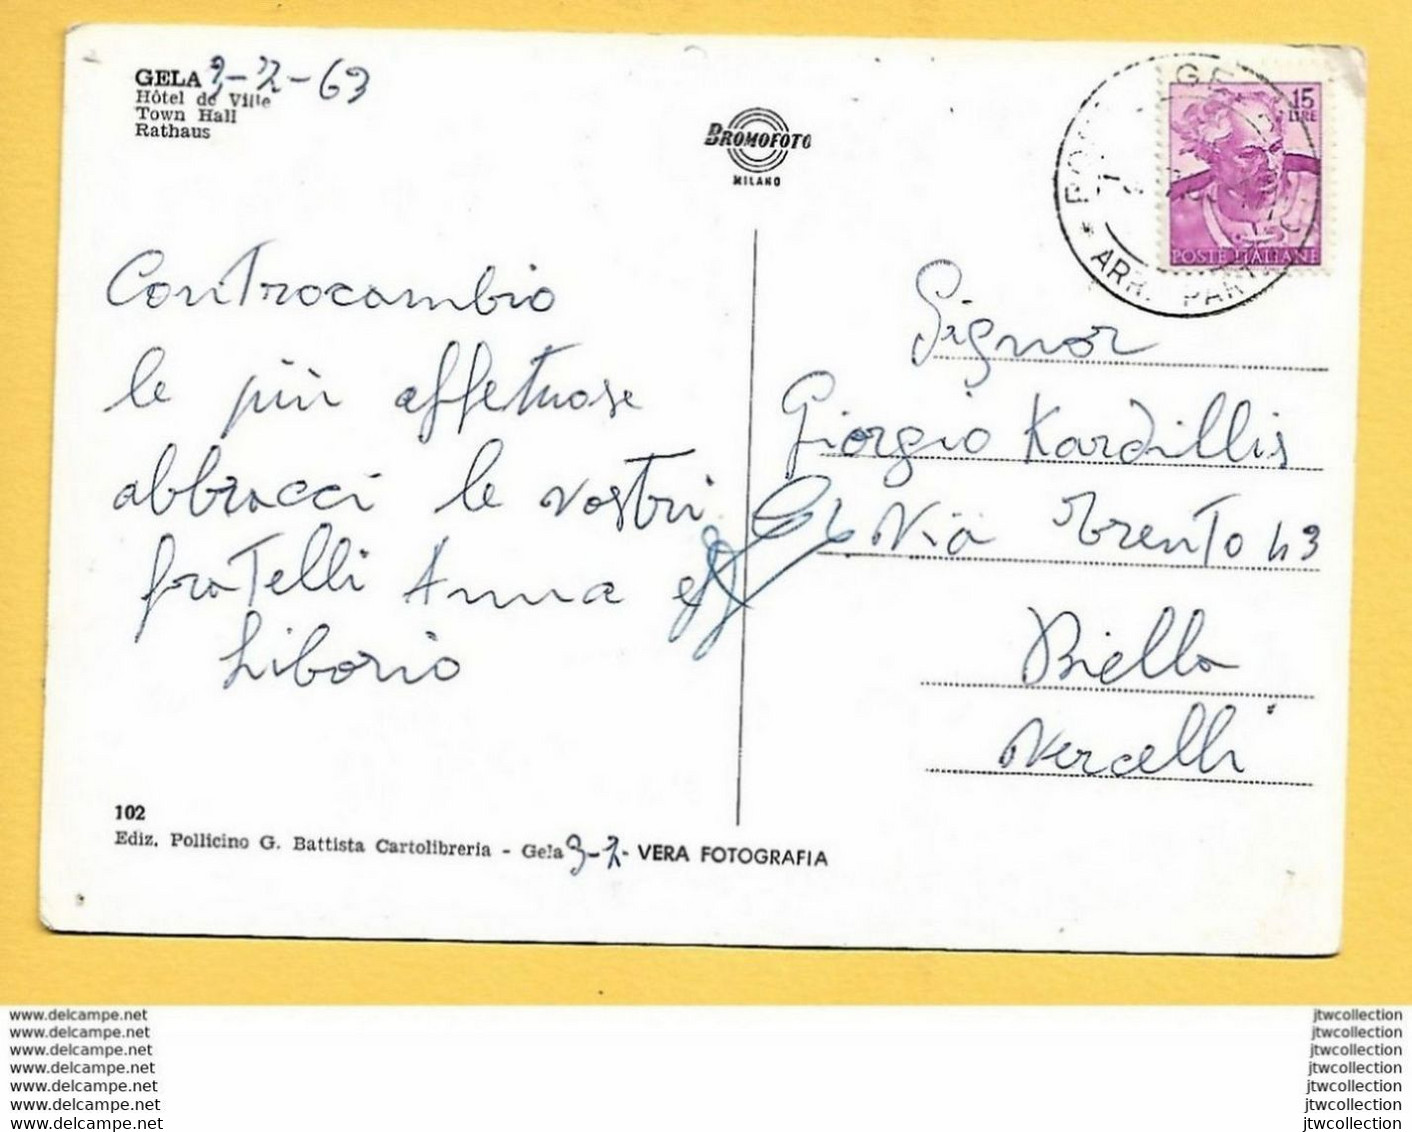 GELA 3-7-63
Hôtel de Ville
Town Hall
Rathaus
BROMOFOTO
MILANO
15
LIRE
POSTE ITALIANE
ARR. PART
Controcambio
le più affetuose
abbracci le vostri
fratelli Anna e
Liborio
Signor
Giorgio Kardillis
Via Trento 43
Biella
Vercelli
102
Ediz. Pollicino G. Battista Cartolibreria - Gela 3-7- VERA FOTOGRAFIA
www.delcampe.net
www.delcampe.net
www.delcampe.net
www.delcampe.net
www.delcampe.net
www.delcampe.net
www.delcampe.net
jtwcollection
jtwcollection
jtwcollection
jtwcollection
jtwcollection
jtwcollection
jtwcollection